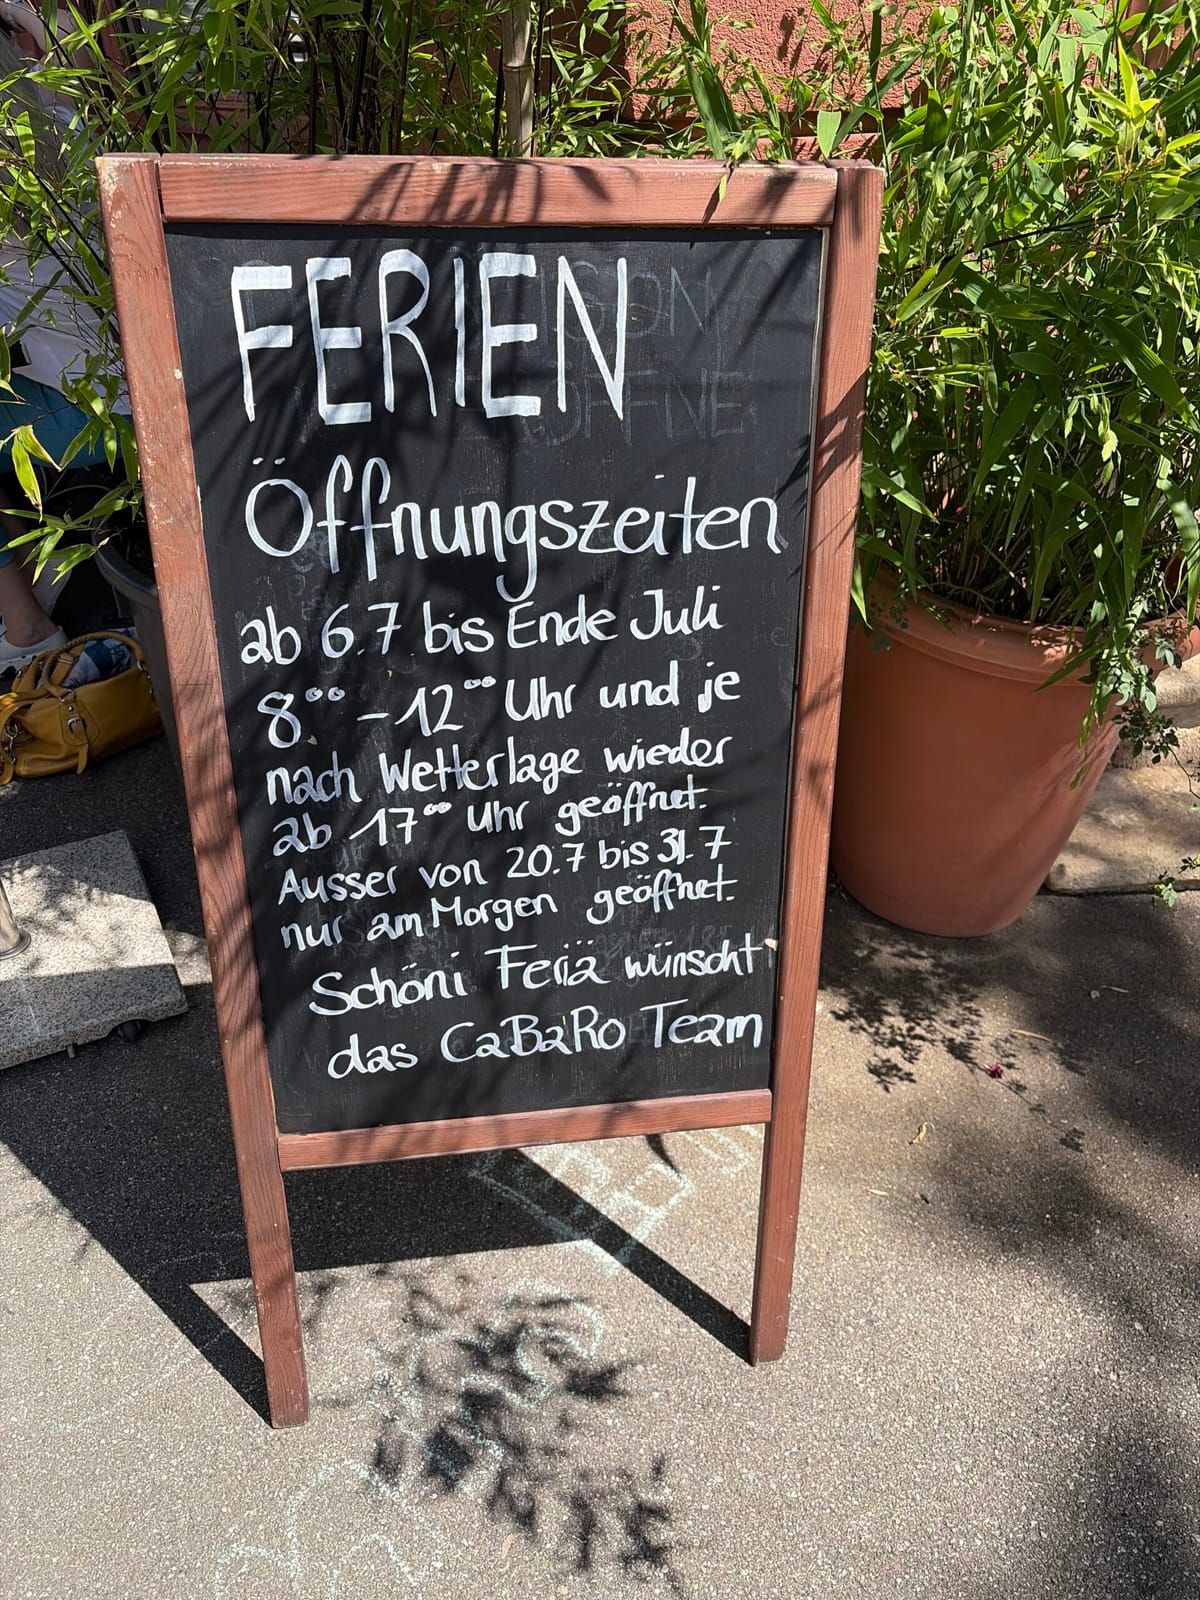 FERIEN
Öffnungszeiten
ab 6.7. bis Ende Juli
8⁰⁰ - 12⁰⁰ Uhr und je
nach Wetterlage wieder
ab 17⁰⁰ Uhr geöffnet.
Ausser von 20.7 bis 31.7
nur am Morgen geöffnet.
Schöni Feriä wünscht
das CaBaRo Team